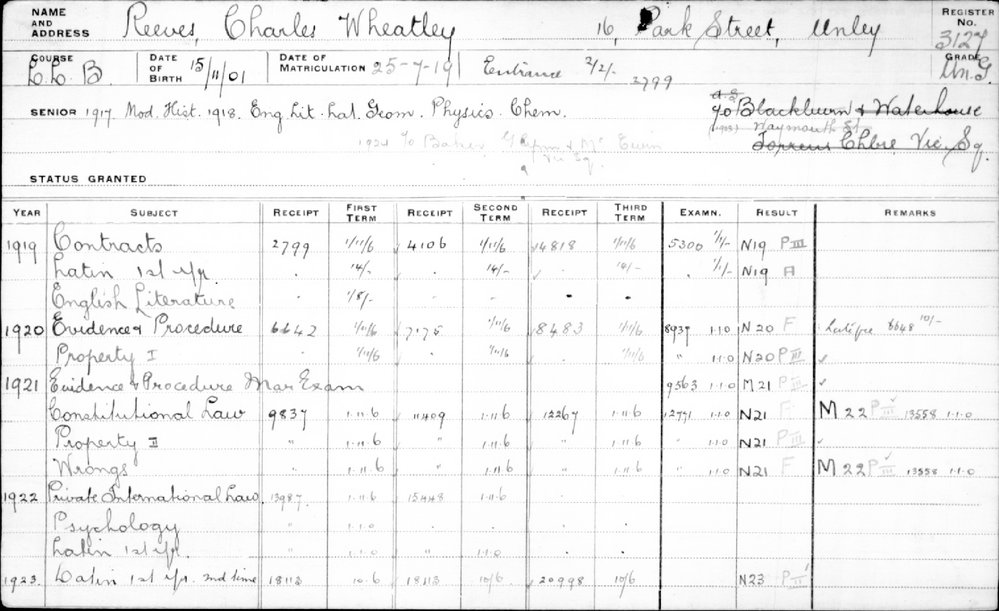 NAME AND ADDRESS Reeves, Charles Wheatley 16, Park Street, Unley REGISTER No. 3127
COURSE LL B DATE OF BIRTH 15/11/01 DATE OF MATRICULATION 25-7-19 Entrance 2/2/- 2799 GRADE Un. G
SENIOR 1917. Mod. Hist. 1918. Eng. Lit. Lat. Geom. Physics. Chem. c/o Blackburn & Waterhouse
Waymouth St
1924 c/o Baker, & Mc Ewin Chbrs Vic. Sq.
Vic Sq.
STATUS GRANTED
YEAR SUBJECT RECEIPT FIRST TERM RECEIPT SECOND TERM RECEIPT THIRD TERM EXAMN. RESULT REMARKS
1919 Contracts 2799 1/11/6 4106 1/11/6 4818 1/11/6 5300 1/1/- N19 P III
Latin 1st yr. " 14/- " 14/- " 14/- " 1/1/- N19 A
English Literature 1/8/- " " " "
1920 Evidence & Procedure 6642 1/11/6 7175 1/11/6 8483 1/11/6 8937 1.1.0 N20 F Late fee 6648 10/-
Property I " 1/11/6 " 1/11/6 " 1/11/6 " 1.1.0 N20 P III ✓
1921 Evidence & Procedure Mar Exam 9563 1.1.0 M21 P III ✓
Constitutional Law 9837 1.11.6 11409 1.11.6 12267 1.11.6 12771 1.1.0 N21 F M 22 P III ✓ 13558 1.1.0
Property II " 1.11.6 " 1.11.6 " 1.11.6 " 1.1.0 N21 P III ✓
Wrongs " 1.11.6 " 1.11.6 " 1.11.6 " 1.1.0 N21 F M 22 P III ✓ 13558 1.1.0
1922 Private International Law. 13987 1.11.6 15448 1.11.6
Psychology " 1.1.0 . . . .
Latin 1st yr. " 1.1.0 " 1.1.0 .
1923. Latin 1st yr. 2nd time 18113 10.6 18113 10/6 20998 10/6 N23 P II ✓